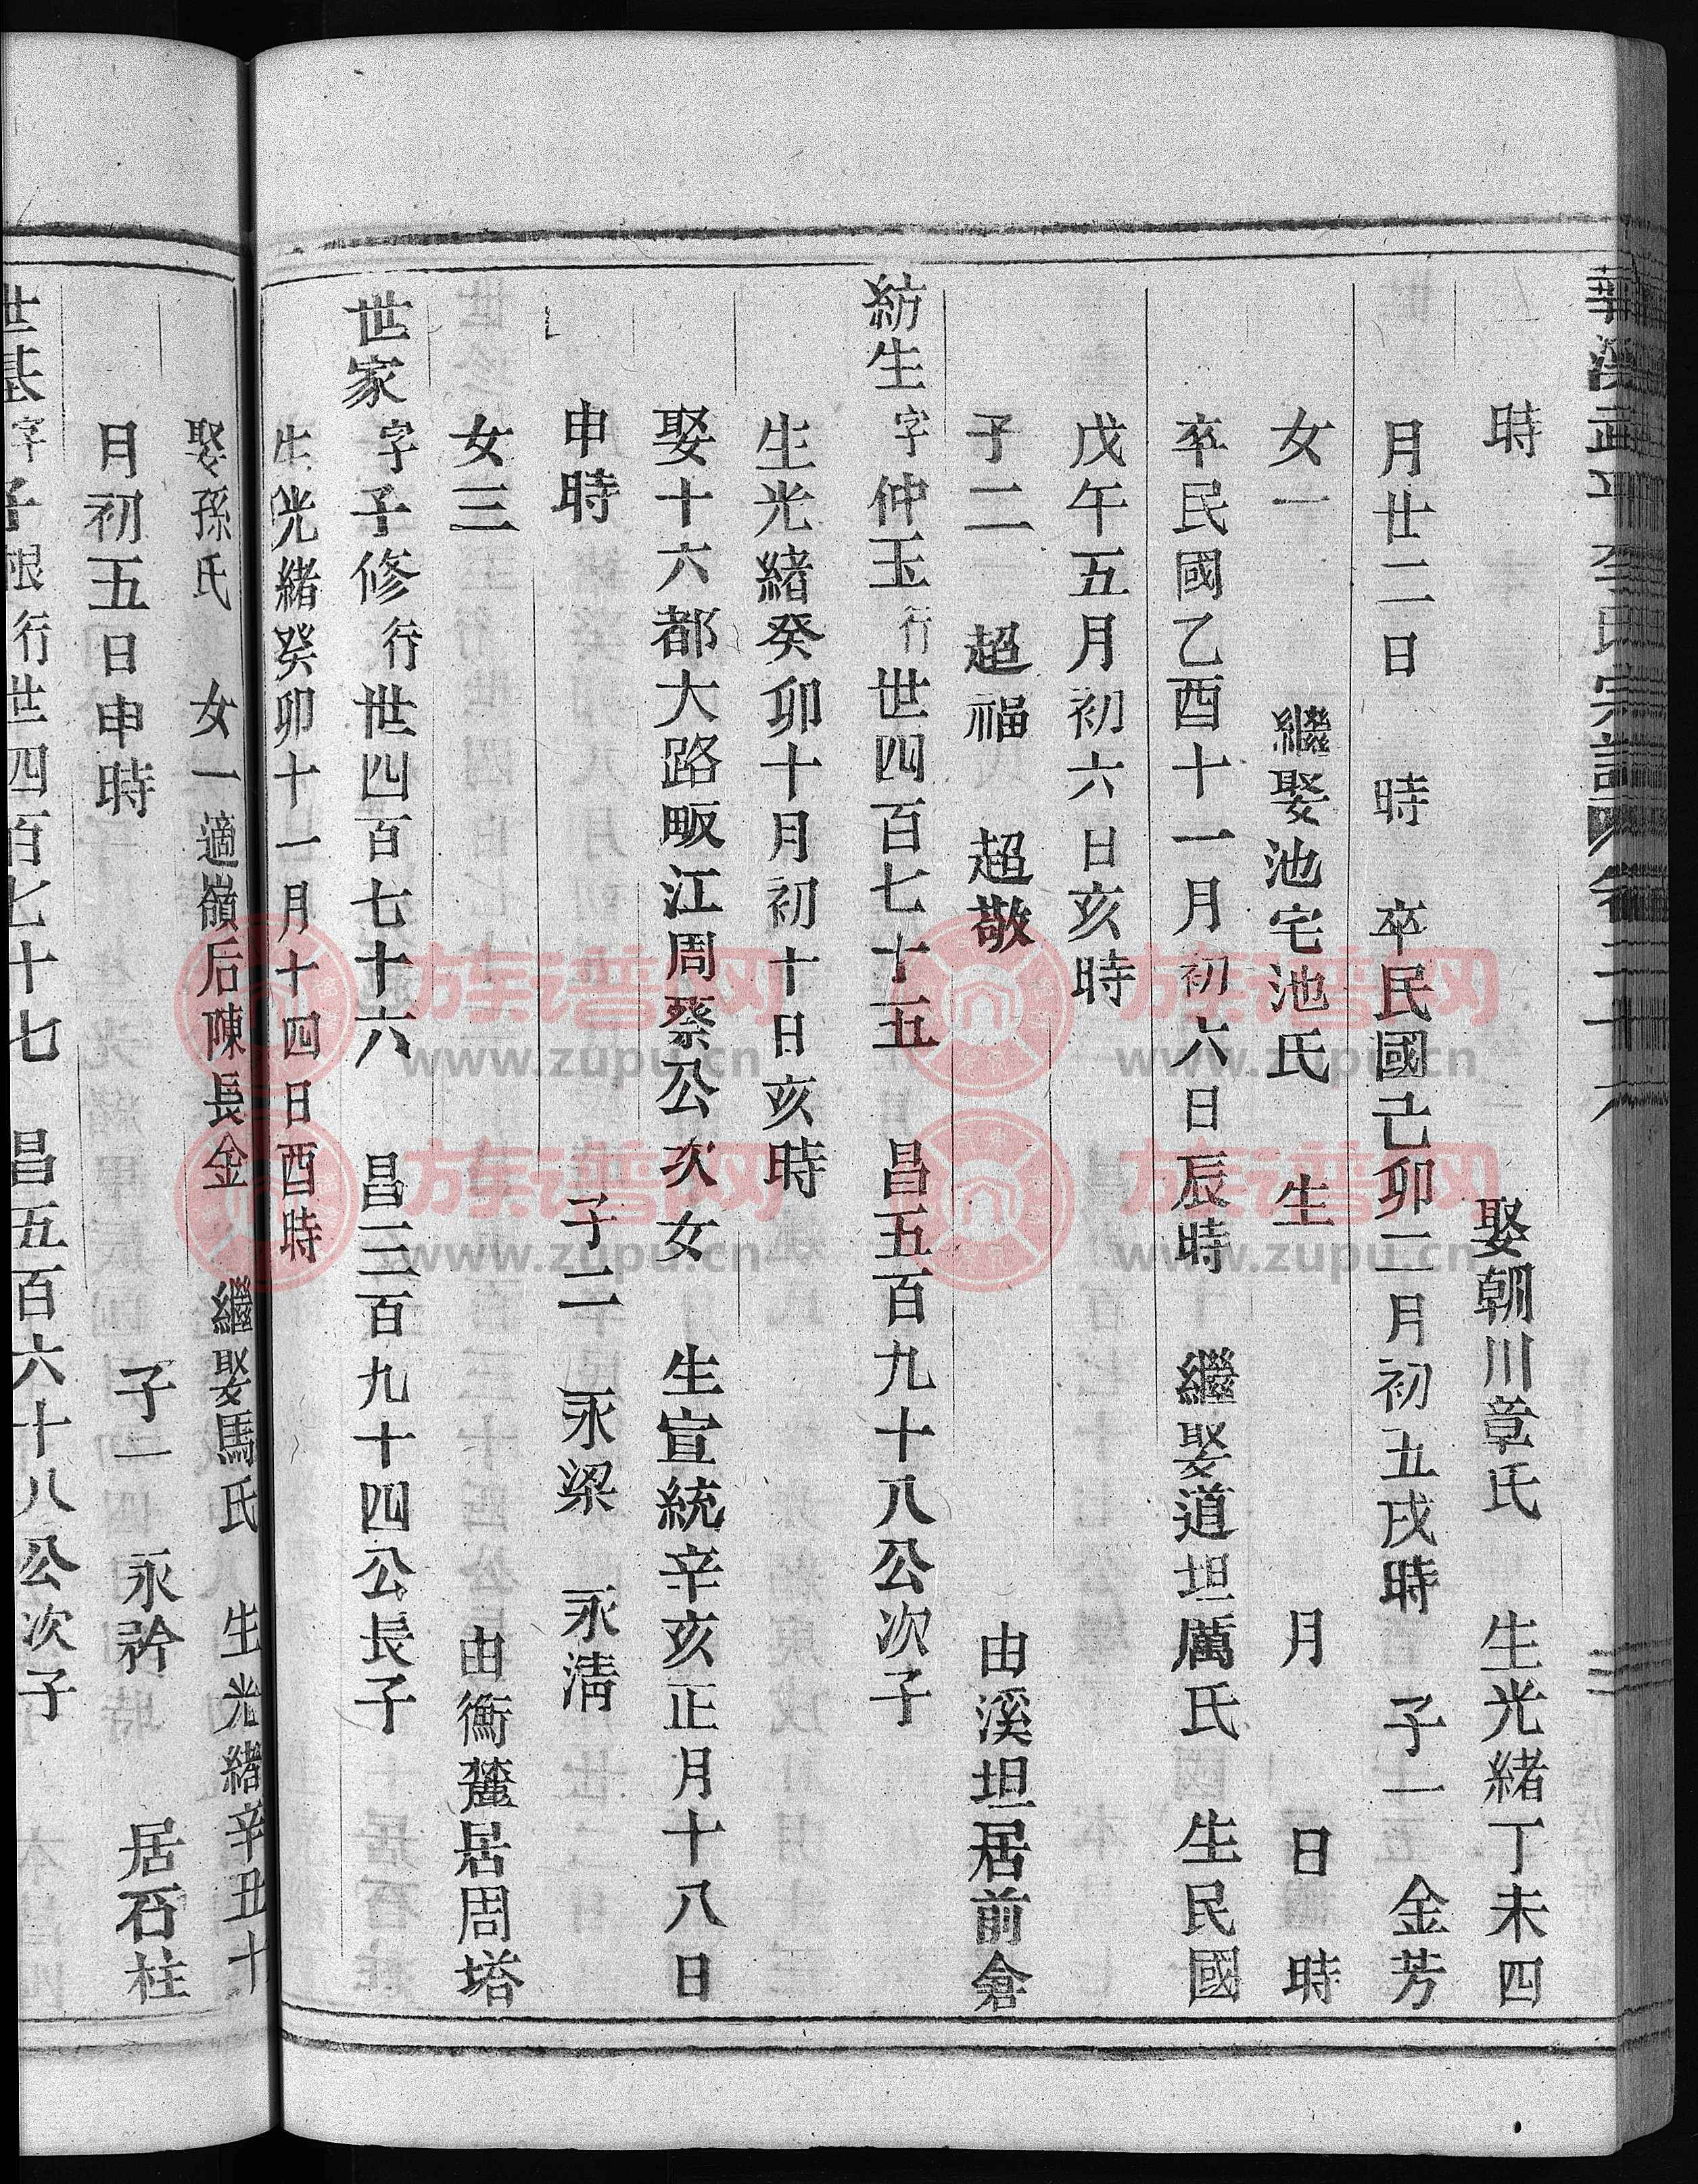 華溪武平李氏宗譜 卷二十八
時 娶朝川章氏 生光緒丁未四
月廿二日 時 卒民國己卯二月初五戌時 子一 金芳
女一 繼娶池宅池氏 生 月 日 時
卒民國乙酉十一月初六日辰時 繼娶道坦厲氏 生民國
戊午五月初六日亥時
子二 超福 超敬 由溪坦居前倉
紡生字仲玉行世四百七十五 昌五百九十八公次子
生光緒癸卯十月初十日亥時
娶十六都大路畈江周蔡公次女 生宣統辛亥正月十八日
申時 子二 永梁 永清
女三 由衡麓居周塔
世家字子修行世四百七十六 昌三百九十四公長子
生光緒癸卯十一月十四日酉時
娶孫氏 女一適嶺后陳長金 繼娶馬氏 生光緒辛丑十
月初五日申時 子一 永矜 居石柱
世基字子根行世四百七十七 昌五百六十八公次子
族谱网
www.zupu.cn
族谱网
www.zupu.cn
族谱网
www.zupu.cn
族谱网
www.zupu.cn